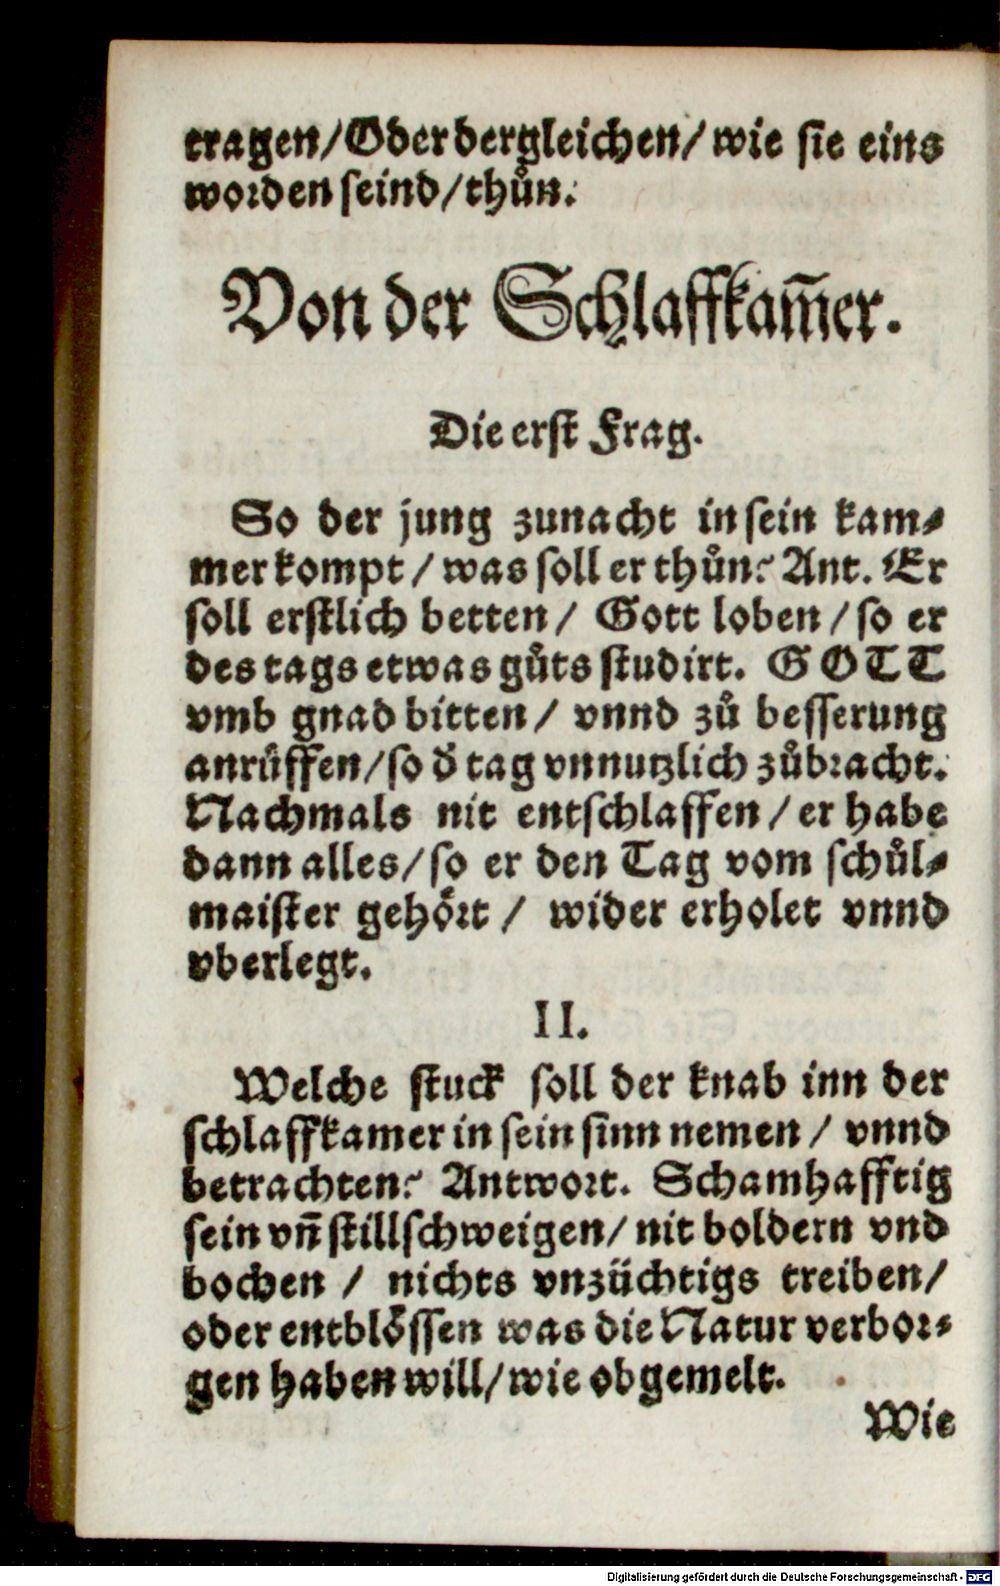 tragen/Oder dergleichen/ wie sie eins
worden seind/thůn.
Von der Schlaffkam̄er.
Die erst Frag.
So der jung zunacht in sein kam-
mer kompt / was soll er thůn? Ant. Er
soll erstlich betten / Gott loben / so er
des tags etwas gůts studirt. GOTT
vmb gnad bitten / vnnd zů besserung
anrůffen/so d̓ tag vnnutzlich zůbracht.
Nachmals nit entschlaffen / er habe
dann alles/so er den Tag vom schůl-
maister gehört / wider erholet vnnd
vberlegt.
II.
Welche stuck soll der knab inn der
schlaffkamer in sein sinn nemen / vnnd
betrachten? Antwort. Schamhafftig
sein vn̄ stillschweigen/ nit boldern vnd
bochen / nichts vnzüchtigs treiben/
oder entblössen was die Natur verbor-
gen haben will/wie obgemelt.
Wie
Digitalisierung gefördert durch die Deutsche Forschungsgemeinschaft - DFG